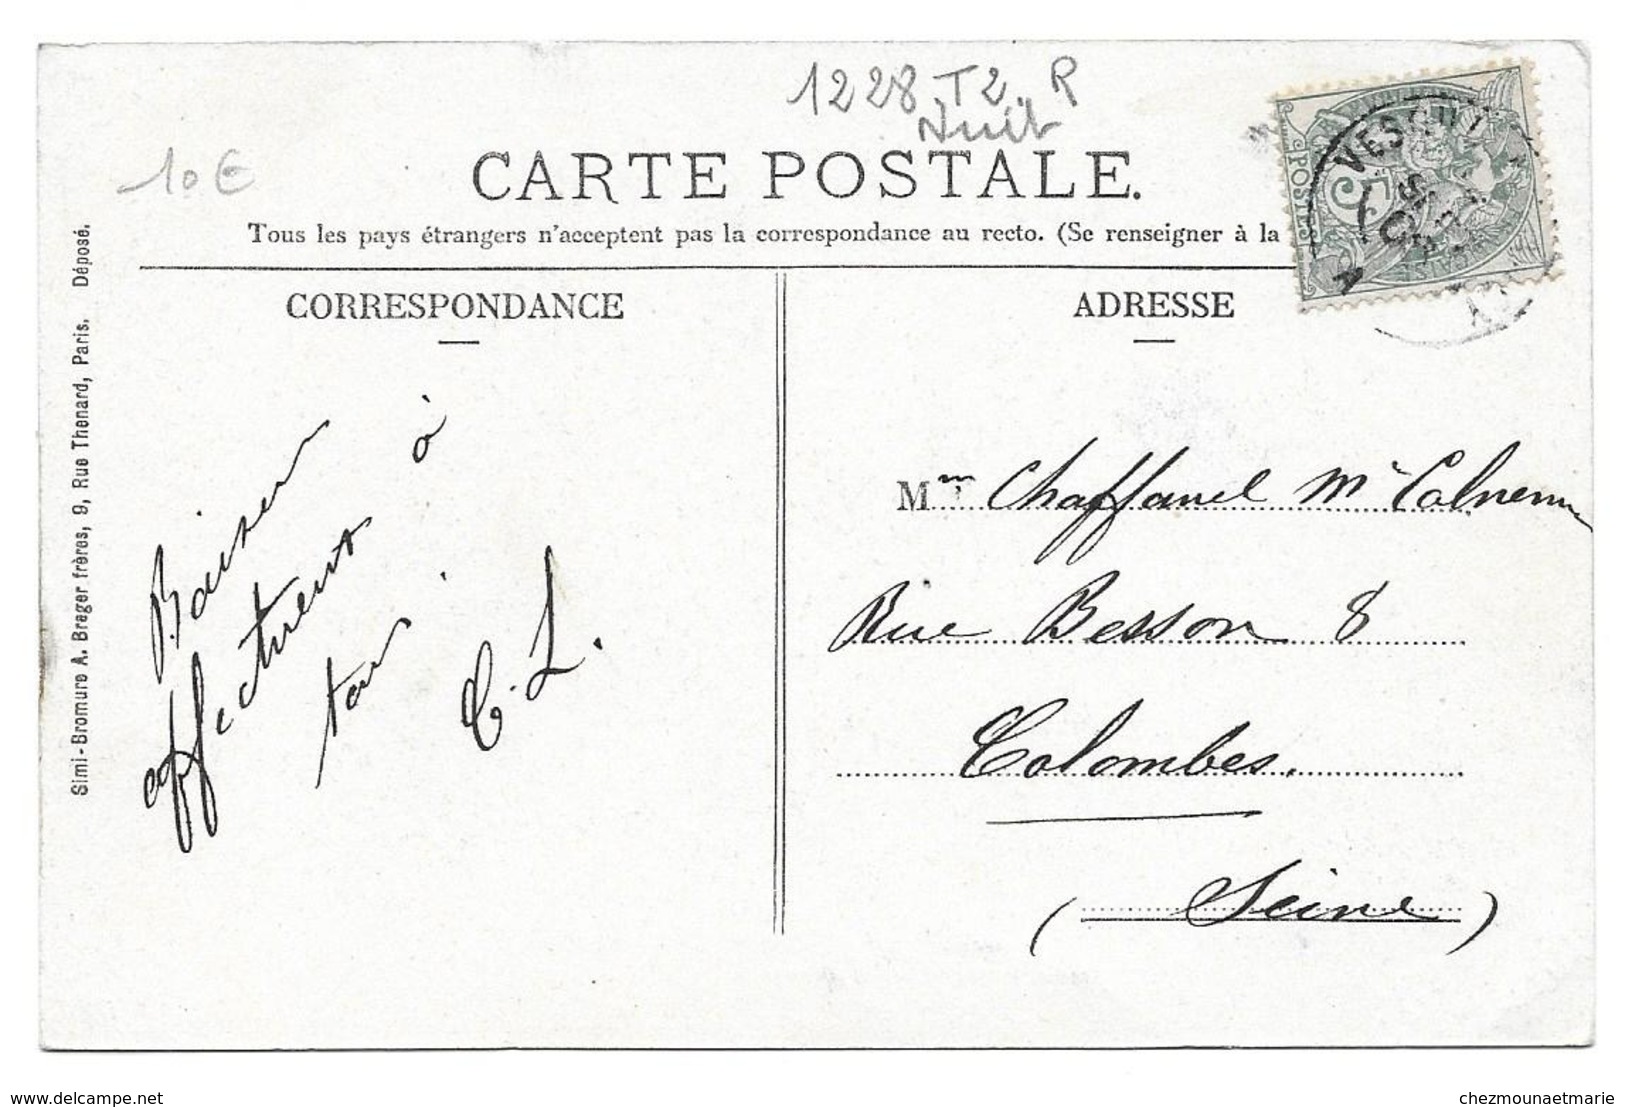 1228 T2 R
Nuit
10 €
CARTE POSTALE.
Tous les pays étrangers n'acceptent pas la correspondance au recto. (Se renseigner à la
CORRESPONDANCE
ADRESSE
POSTES
5
Simi-Bromure A. Breger frères, 9, Rue Thenard, Paris. Déposé.
Baisers
affectueux à
tous.
C. L.
Mme Chaffanel
Rue Besson 8
Colombes.
(Seine)
www.delcampe.net
chezmounaetmarie